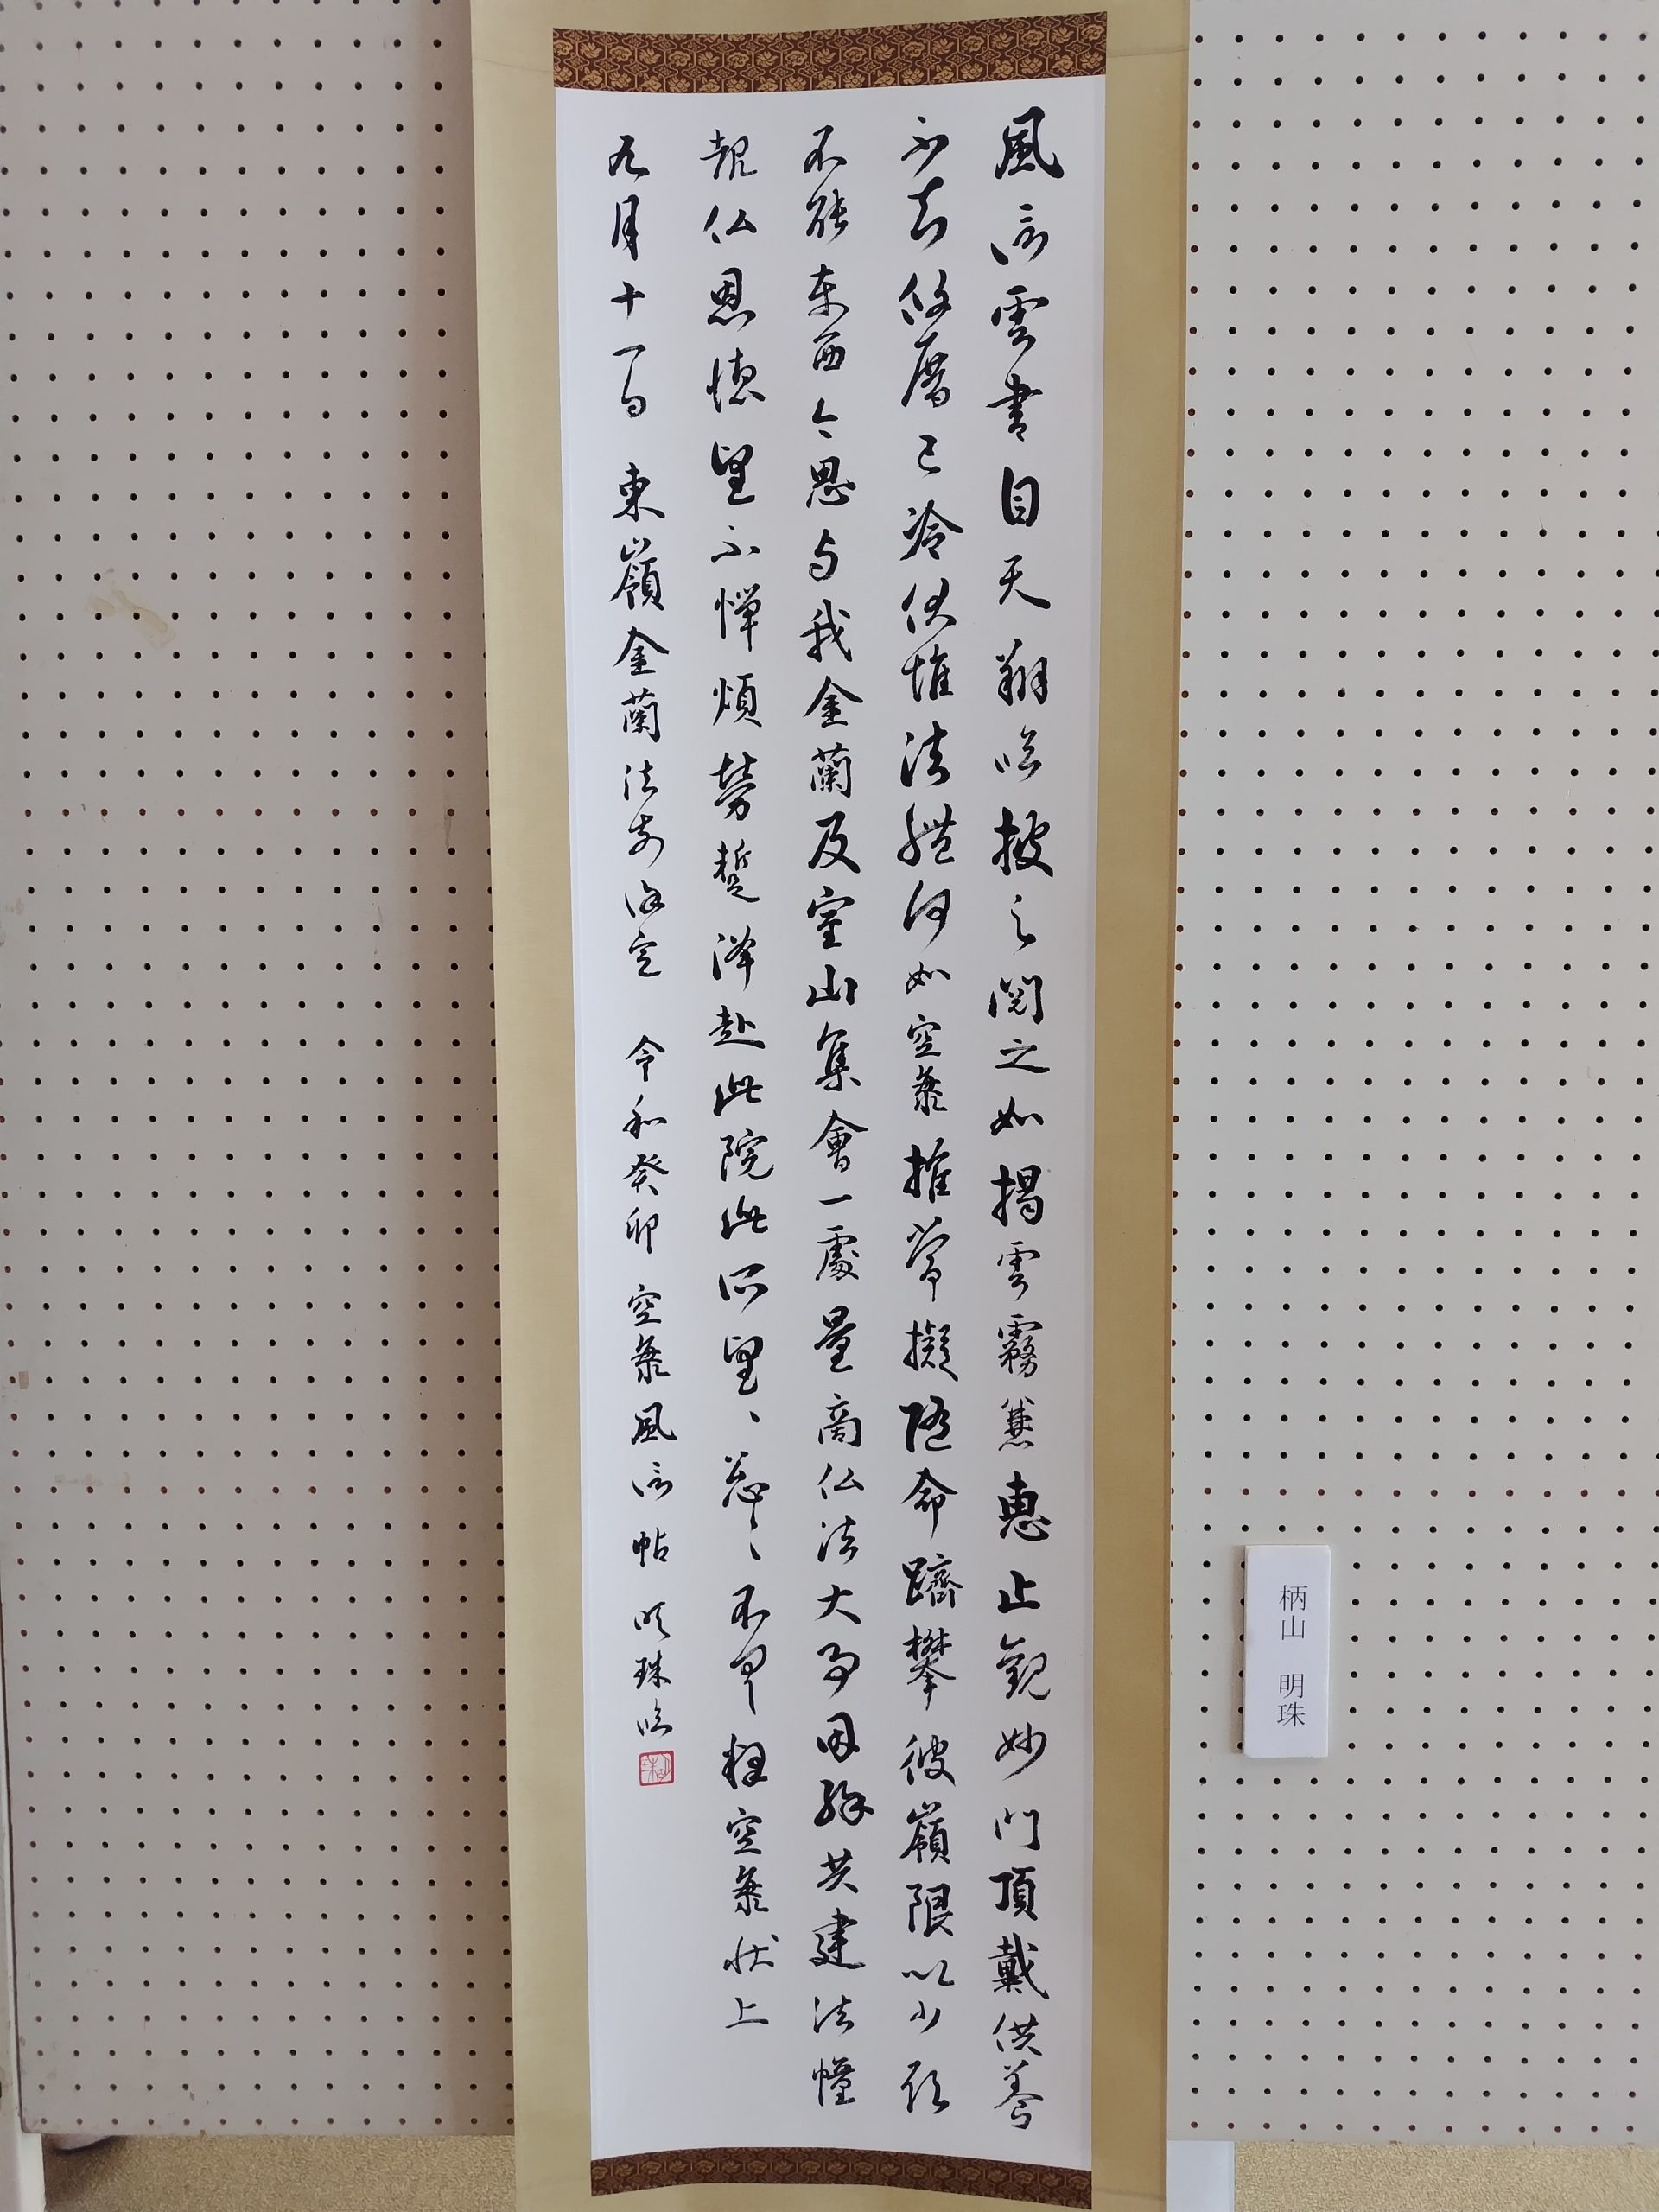 風信雲書自天翔臨披之閲之如掲雲霧兼恵止観妙門頂戴供養
不知攸厝已冷伏惟法體何如空海推常擬随命躋攀彼嶺限以少願
不能東西今思与我金蘭及室山集會一處量商仏法大事因縁共建法幢
報仏恩徳望不憚煩勞蹔降赴此院此所望〻忩〻不具釋空海状上
九月十一日 東嶺金蘭法前謹空 令和癸卯 空海風信帖 明珠臨
柄山 明珠